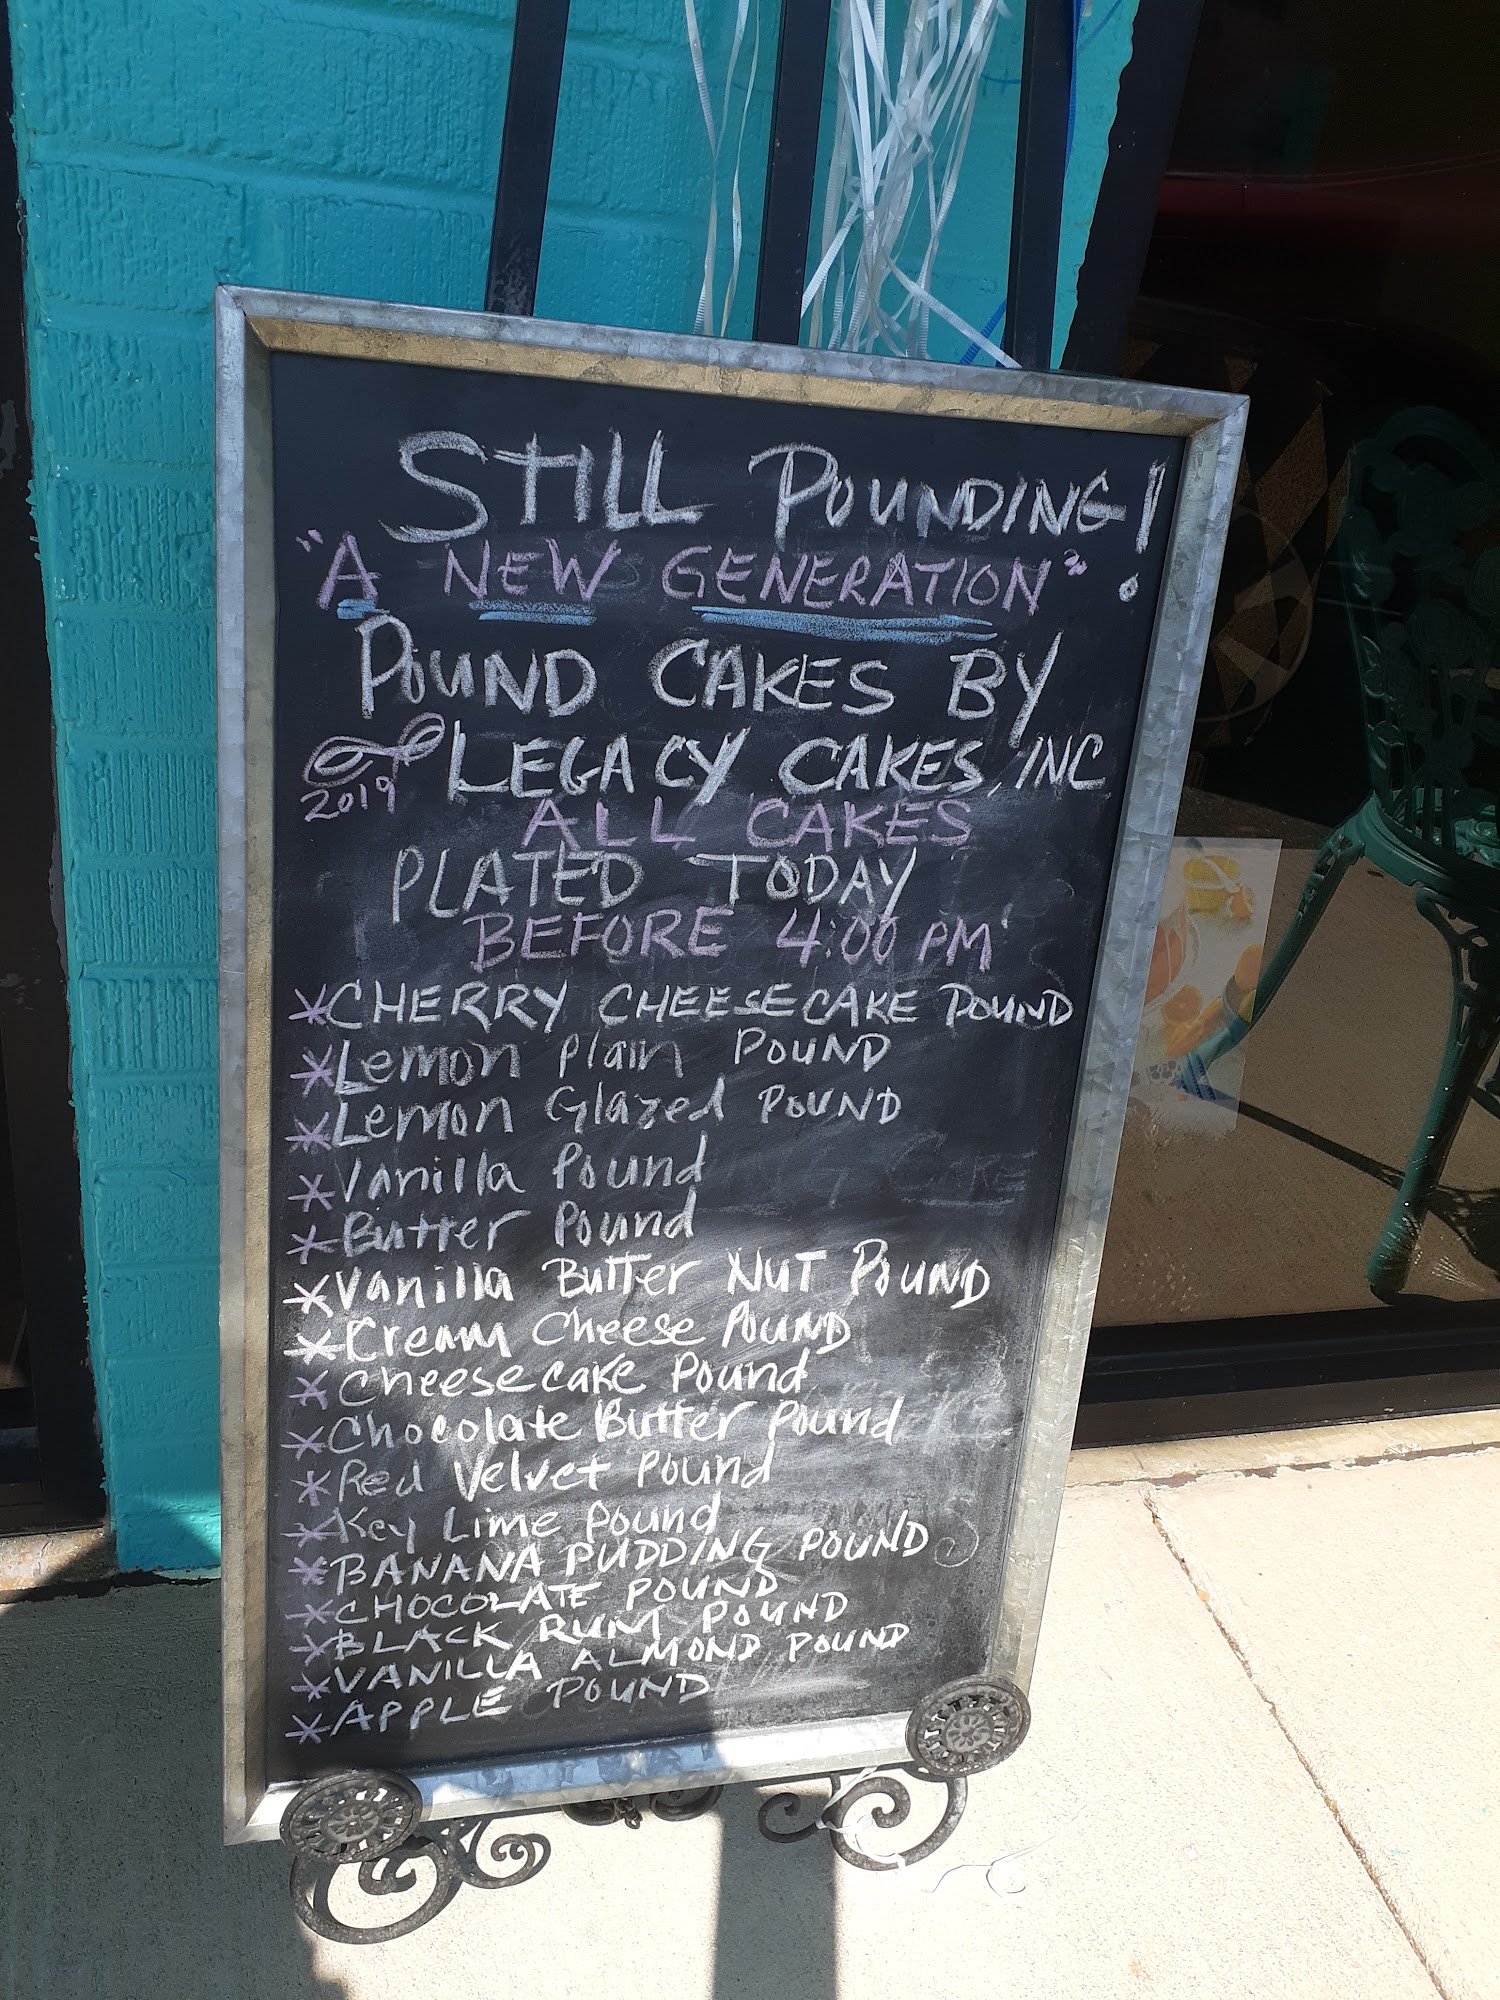 STILL POUNDING!
"A NEW GENERATION"
POUND CAKES BY
LEGACY CAKES, INC
2019
ALL CAKES
PLATED TODAY
BEFORE 4:00 PM
*CHERRY CHEESECAKE POUND
*Lemon Plain POUND
*Lemon Glazed POUND
*Vanilla Pound
*Butter Pound
*Vanilla Butter NUT POUND
*Cream Cheese POUND
*Cheesecake Pound
*Chocolate Butter Pound
*Red Velvet Pound
*Key Lime Pound
*BANANA PUDDING POUND
*CHOCOLATE POUND
*BLACK RUM POUND
*VANILLA ALMOND POUND
*APPLE POUND